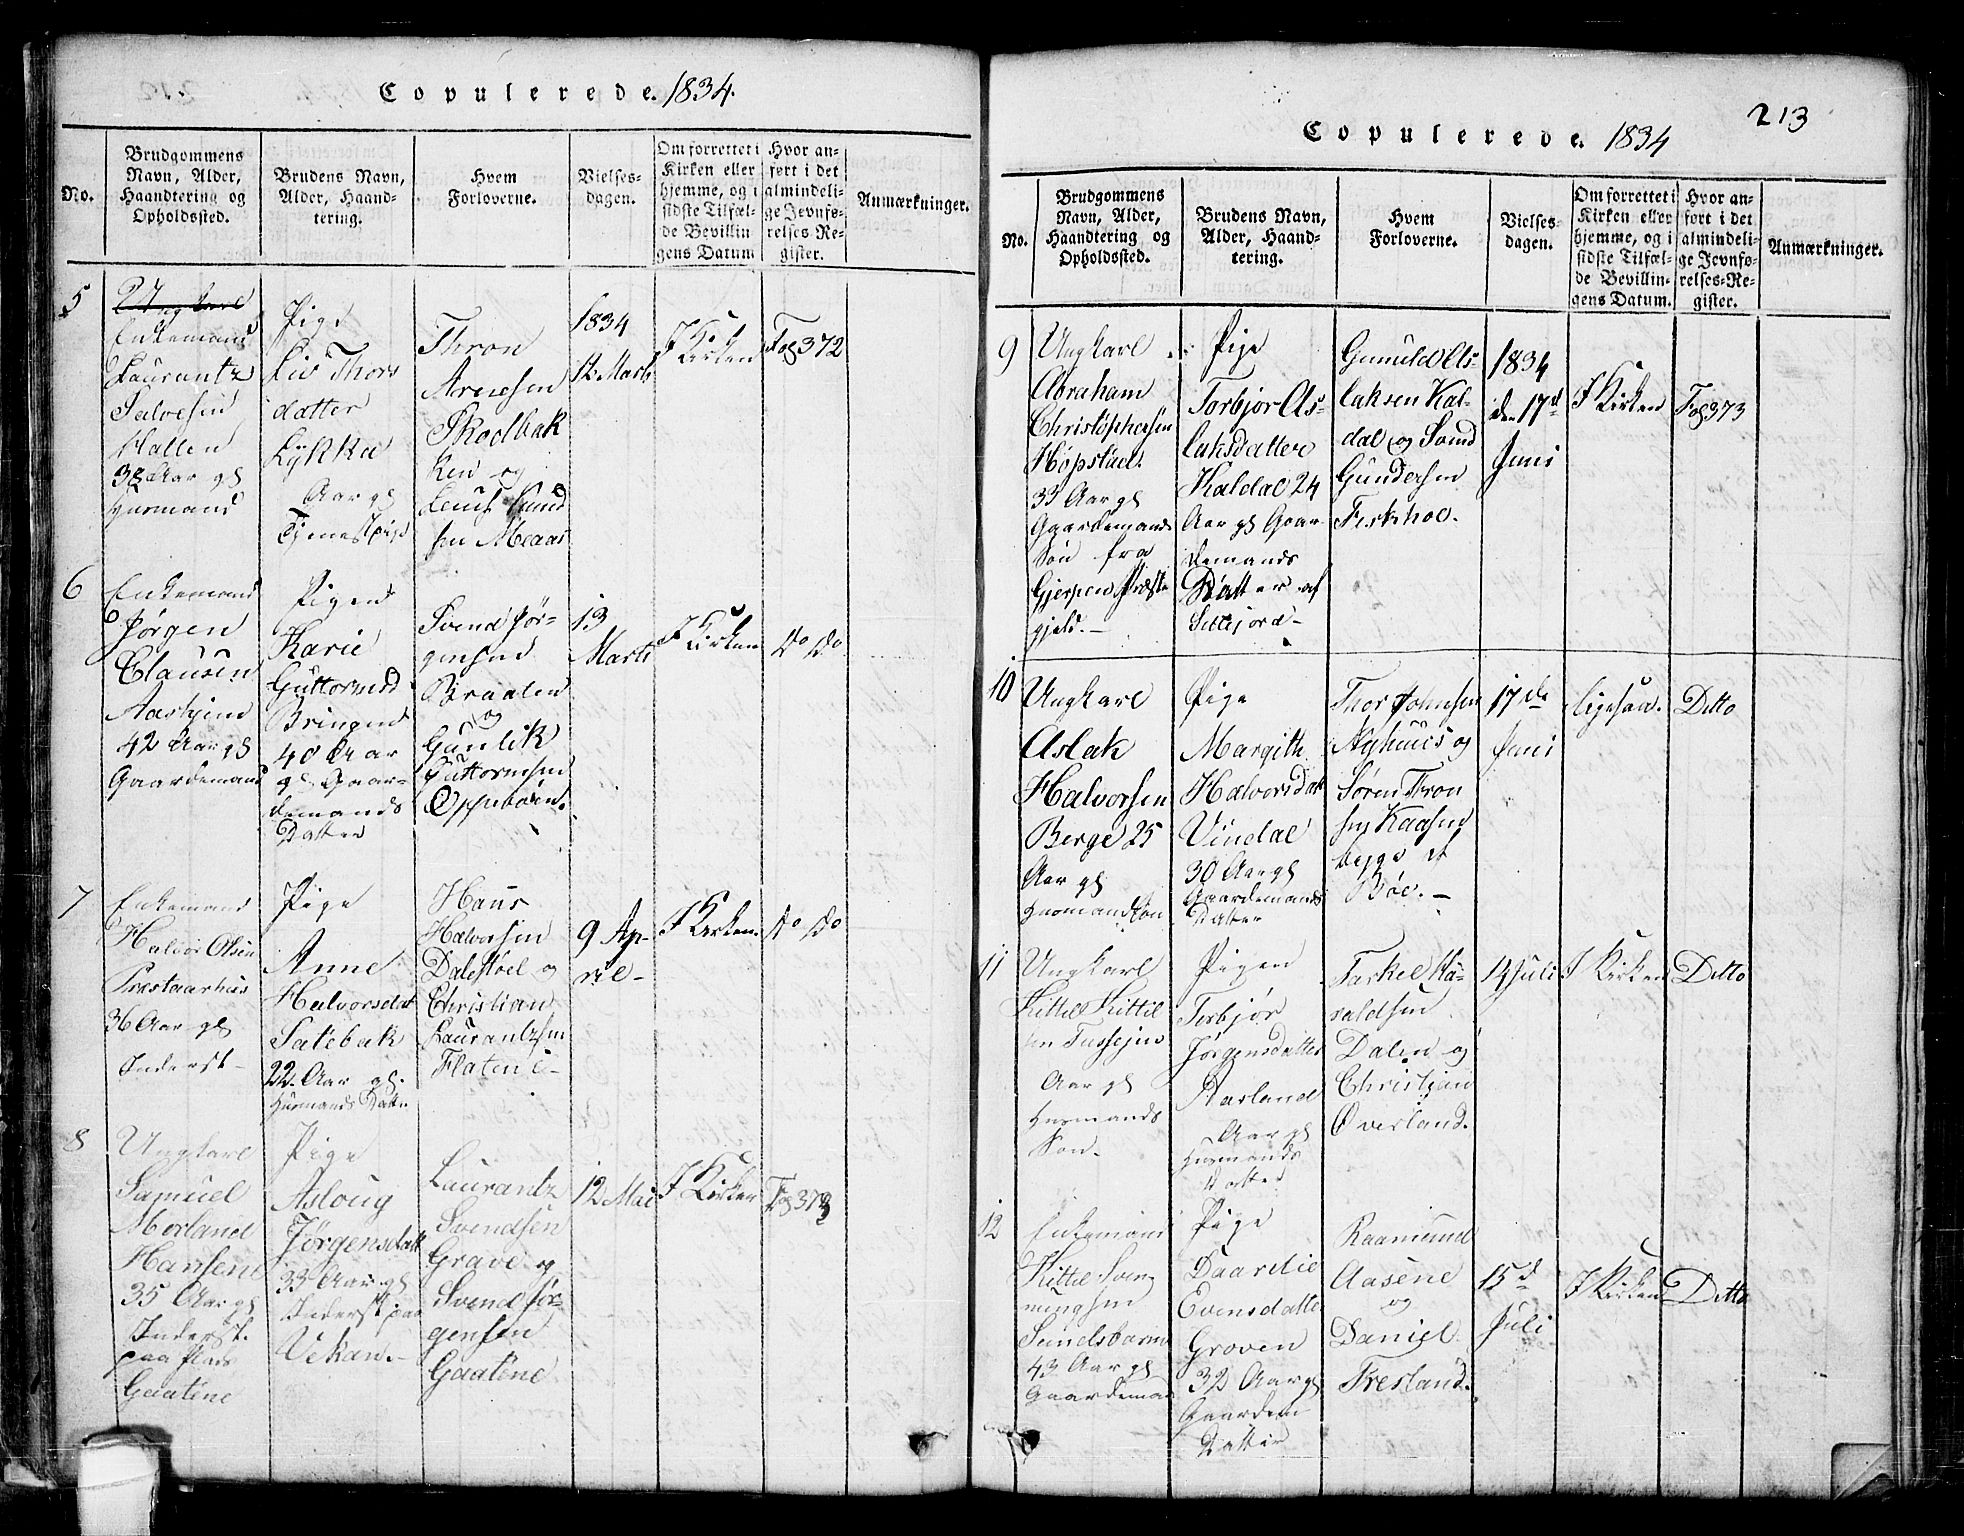 Copulerede. 1834.
No.
Brudgommens
Navn, Alder,
Haandtering og
Opholdssted.
Brudens Navn,
Alder, Haand-
tering.
Hvem
Forloverne.
Vielses-
dagen.
Om forrettet i
Kirken eller
hjemme, og i
sidste Tilfæl-
de Bevillin
gens Datum
Hvor an-
ført i det
almindeli-
ge Jevnfø-
relses Re-
gister.
Anmærkninger.
5
Ungkarl
Enkemand
Laurantz
Salvesen
Hallen
38 Aar gl
Huusmand
Pige
Liv Thors
datter
Lykka
Aar gl
Tjenestpige
Thron
Arnesen
Skodbak
ken og
sen Maas
1834
12 Marts
I Kirken
Fog 372
6
Enkemand
Jørgen
Clausen
Aashjem
42 Aar gl
Gaardemand
Pigen
Karie
Guttormsd
Bringen
40 Aar
gl Gaar-
demands
Datter
Svend Jør-
gensen
Braalen
og
Gunlik
Guttormsen
Oppeboen.
13
Marts
I Kirken
do do
7
Enkemand
Halvor Olsen
Prestaarhus
36 Aar gl
Inderst
Pige
Anne
Halvorsdat
Satebak
22 Aar gl.
Huusmands Datte
Hans
Halvorsen
Dalestøel og
Christian
Laurantzsen
Flatene
9 Ap-
ril
I Kirken.
do do
8
Ungkarl
Samuel
Morland
Hansen
35 Aar gl
Inderst.
paa Plads
Gaatene
Pige
Asloug
Jørgensdatt
33 Aar gl
Inderst paa
Vekan.
Laurantz
Svendsen
Grave og
Svend Jør-
gensen
Gaatene
12 Mai
I Kirken
Fog 373
213
Copulerede. 1834
No.
Brudgommens
Navn, Alder,
Haandtering og
Opholdssted.
Brudens Navn,
Alder, Haand-
tering.
Hvem
Forloverne.
Vielses-
dagen.
Om forrettet i
Kirken eller
hjemme, og i
sidste Tilfæl-
de Bevillin-
gens Datum.
Hvor an-
ført i det
almindeli-
ge Jevnfø-
relses-Re-
gister.
Anmærkninger.
9
Ungkarl
Abraham
Christophersen
Høpstad.
33 Aar gl
Gaardemands
Søn fra
Gjerpen Præste
gjeld.
Pige
Torbjør As-
laksdatter
Kaldal 24
Aar gl Gaar-
demands
Datter af
Sillejord
Gunuld As-
laksen Kal-
dal og Svend
Gundersen
Fiskhol.
1834
den 17d
Juni
I Kirken
Fog 373
10
Ungkarl
Aslak
Halvorsen
Berge 25
Aar gl
Huusmands Søn
Pige
Margith
Halvorsdat
Vindal
30 Aar gl
Gaardemands
Datter
Thor Johnsen
Nyhuus og
Søren Thron
sen Kaasen
begge af
Bøe.
17de
Juni
ligesaa.
Ditto
11
Ungkarl
Kittil Kittil
sen Tussejuv
Aar gl
Huusmands
Søn.
Pigen
Torbjør
Jørgensdatter
Aarland
Aar gl
Huusmands
Datter
Tarkel Ha-
raldsen
Dalen og
Christian
Øverland.
14 Juli
I Kirken
Ditto
12
Enkemand
Kittil Sven
nungsen
Sundsbarm
43 Aar gl
Gaardeman
Pige
Daardie
Evensdatte
Groven
32 Aar gl
Gaardem
Datter
Raamund
Aasene
og
Daniel
Fresland.
15d
Juli
I Kirken
Ditto